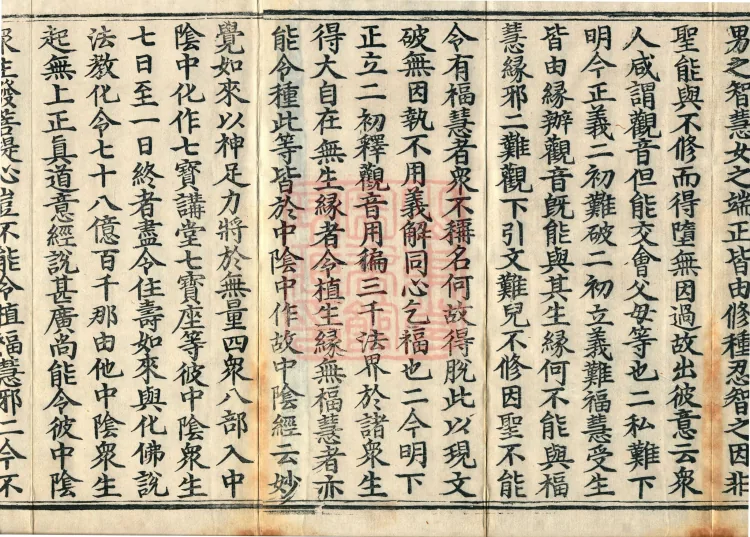 男之智慧女之端正皆由修種忍智之因非
聖能與不修而得墮無因過故出彼意云衆
人咸謂觀音但能交會父母等也二私難下
明今正義二初難破二初立義難福慧受生
皆由緣辦觀音旣能與其生緣何不能與福
慧緣邪二難觀下引文難兒不修因聖不能
令有福慧者衆不稱名何故得脫此以現文
破無因執不用義解同心乞福也二今明下
正立二初釋觀音用徧三千法界於諸衆生
得大自在無生緣者令植生緣無福慧者亦
能令種此等皆於中陰中作故中陰經云妙
覺如來以神足力將於無量四衆八部入中
陰中化作七寶講堂七寶座等彼中陰衆生
七日至一日終者盡令住壽如來與化佛說
法教化令七十八億百千那由他中陰衆生
起無上正眞道意經說甚廣尚能令彼中陰
衆生發菩提心豈不能令植福慧邪二今不